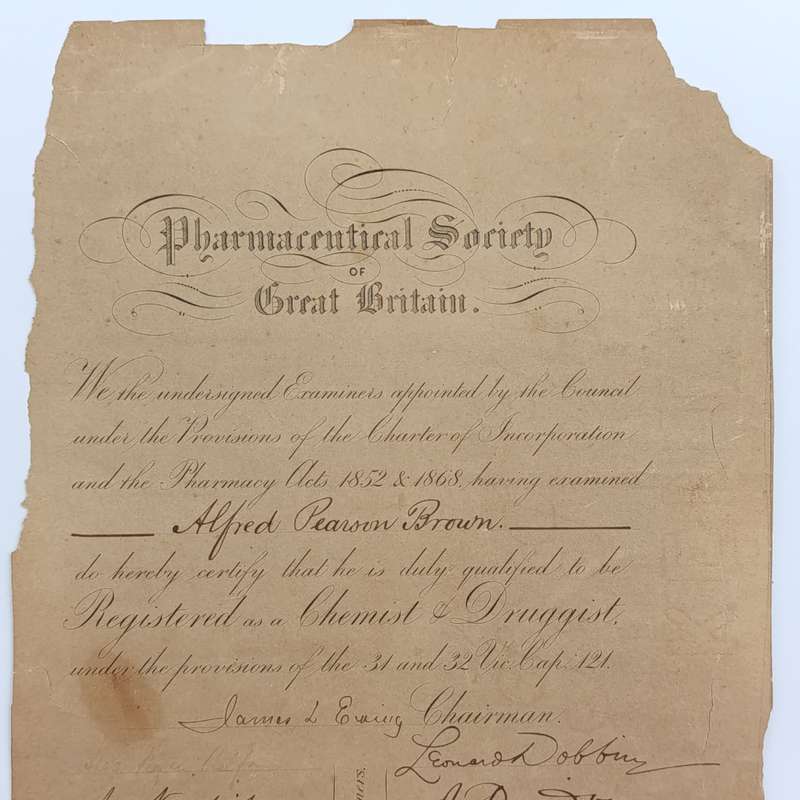 Pharmaceutical Society
OF
Great Britain.
We the undersigned Examiners appointed by the Council
under the Provisions of the Charter of Incorporation
and the Pharmacy Acts, 1852 & 1868, having examined
Alfred Pearson Brown.
do hereby certify that he is duly qualified to be
Registered as a Chemist & Druggist,
under the provisions of the 31 and 32 Vic. Cap. 121.
James L Ewing Chairman.
Leonard Dobbin